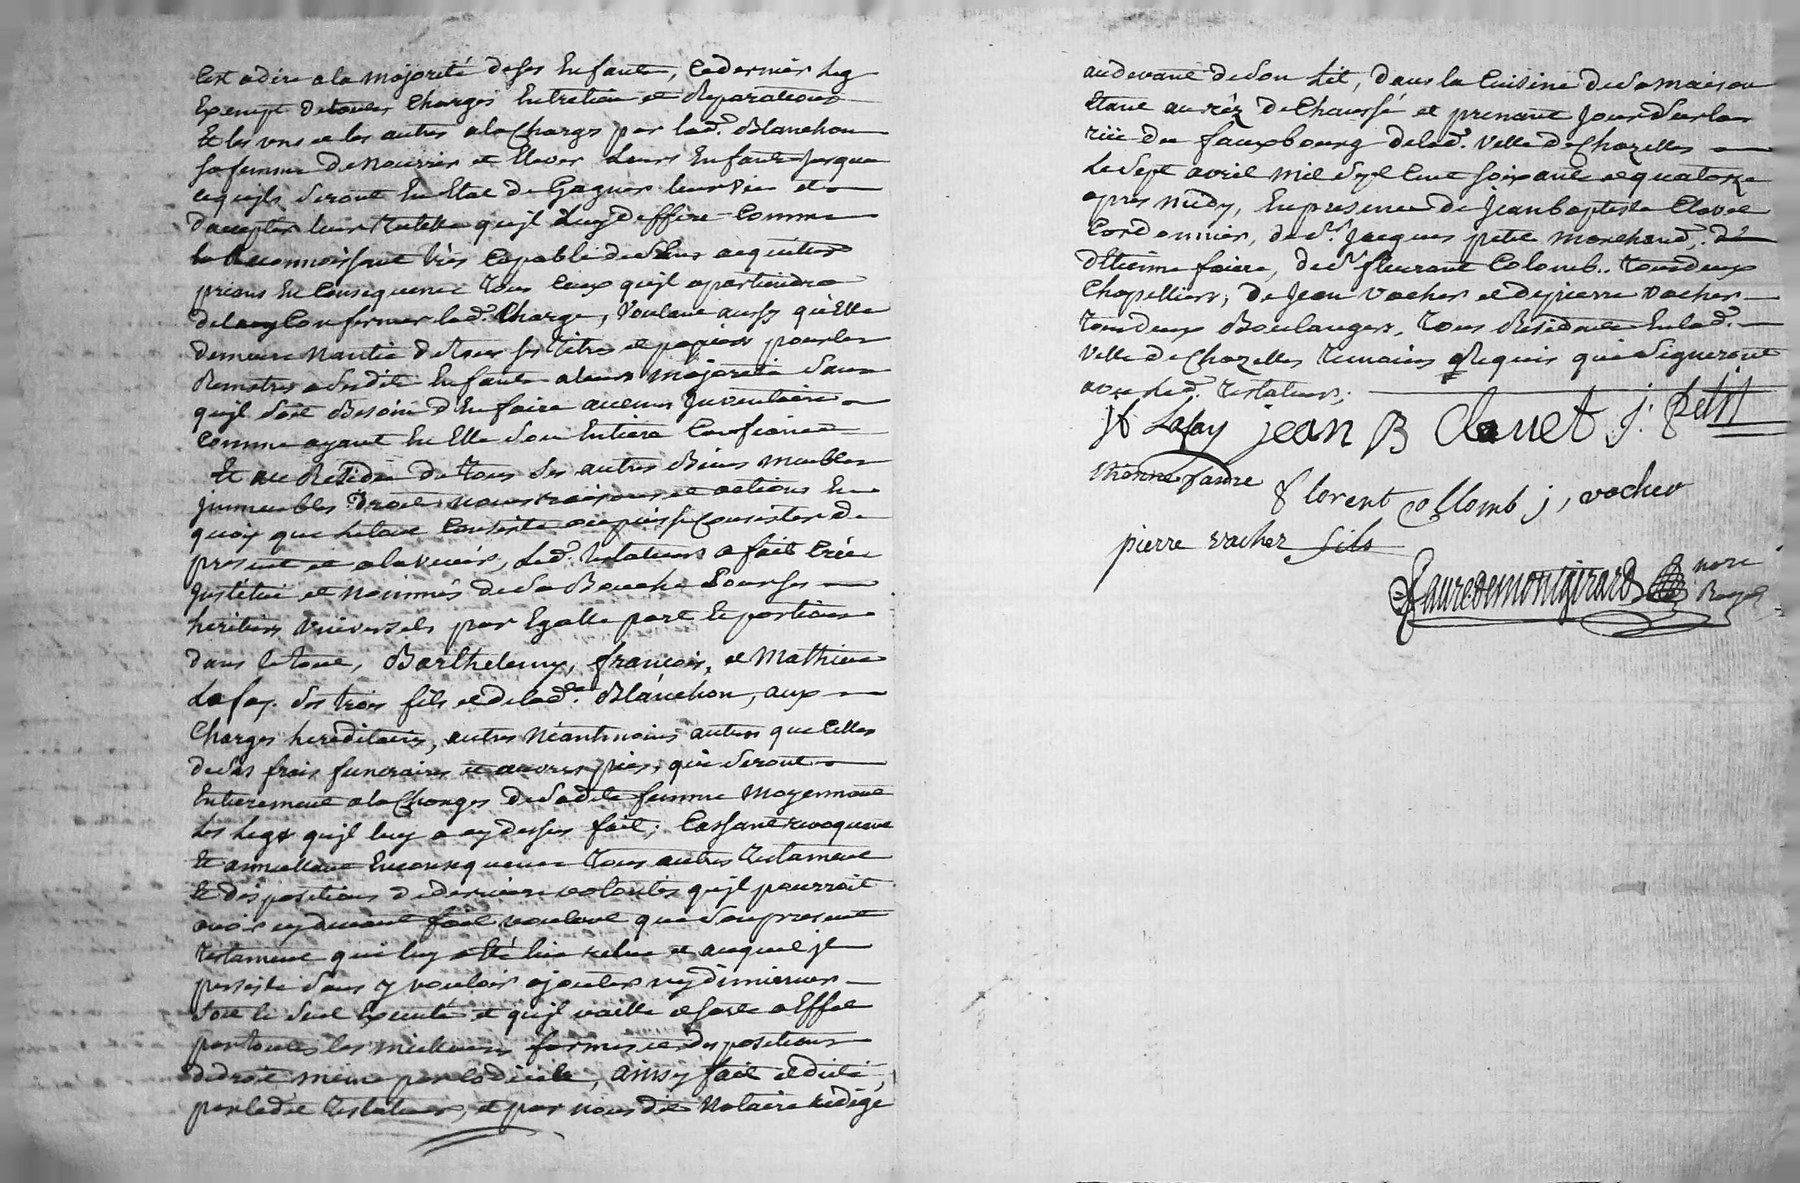 C'est adire ala majorité deses Enfants, Ce dernier Leg
Exempt detoutes Charges Entretien et Reparations
Et les uns et les autres ala Charge par lad.e Blanchon
sa femme de nourrir et Elever Leurs Enfants jusqua
cequils seront En Etat de Gagner leur vie et
d'accepter leur tutelle qu'il Luy deffere Comme
la Reconnoissant très Capable de s'en acquitter
priant En Consequence Tous Ceux qu'il apartiendra
de luy Confirmer lad.e Charge, Voulant aussy qu'Elle
demeure Nantie de tous ses titres et papiers pour les
Remettre a sesdits Enfants a leur majorité sans
qu'il soit Besoin d'En faire aucun Inventaire
comme ayant En Elle son Entiere Confiance
Et au Résidu de tous ses autres Biens meubles
immeubles Droits noms raisons et actions En
quoy que le tout Consiste ou puisse Consister de
present et alavenir, Led.t testateur a fait Créé
Institué et Nommés desa Bouche Pour ses
heritiers Universels par Egalle part Et portions
dans le tout, Barthelemy, françois, et Mathieu
Lafay. ses trois fils et de lad.te Blanchon, aux
Charges hereditaires, autres Néantmoins autres que Celles
deses frais funeraires et œuvres pies, qui seront
Entierement ala Charges desadite femme Moyennant
Les Legs qu'il luy a cy dessus fait; Cassant revoquant
Et annullant En consequence tous autres testament
Et dispositions de derniere volontés qu'il pourroit
avoir cy devant fait voulant que son present
testament qui luy a été lu relu et auquel il
persiste sans y vouloir ajouter ny diminuer
soit le seul Executé et qu'il vaille et sorte a Effet
par toutes les meilleures formes et dispositions
de droit même par Codicile, ainsy fait et dicté
par ledit testateur, et par nous dit Notaire rédigé
audevant deson Lit, dans la Cuisine desa maison
Etant au réz de Chaussé et prenant jour sur la
rüe du fauxbourg de lad.e Ville de Chazelles
Le sept avril mil sept Cent soixante et quatorze
après midy, En presence de Jean baptiste Clavet
Cordonnier, de s.r Jacques petit marchand,
d'Etienne faure, de s.r fleurant Colomb.. tous deux
Chapelliers, de Jean Vacher et de pierre Vacher
tous deux Boulangers, tous Résidents En lad.e
Ville de Chazelles temoins Requis qui signeront
avec Led.t testateur,
Lafay jean B Clauet J. Petit
Etienne faure
florent collomb j, vacher
pierre vacher fils
Fauredemontgirard nore
Royal